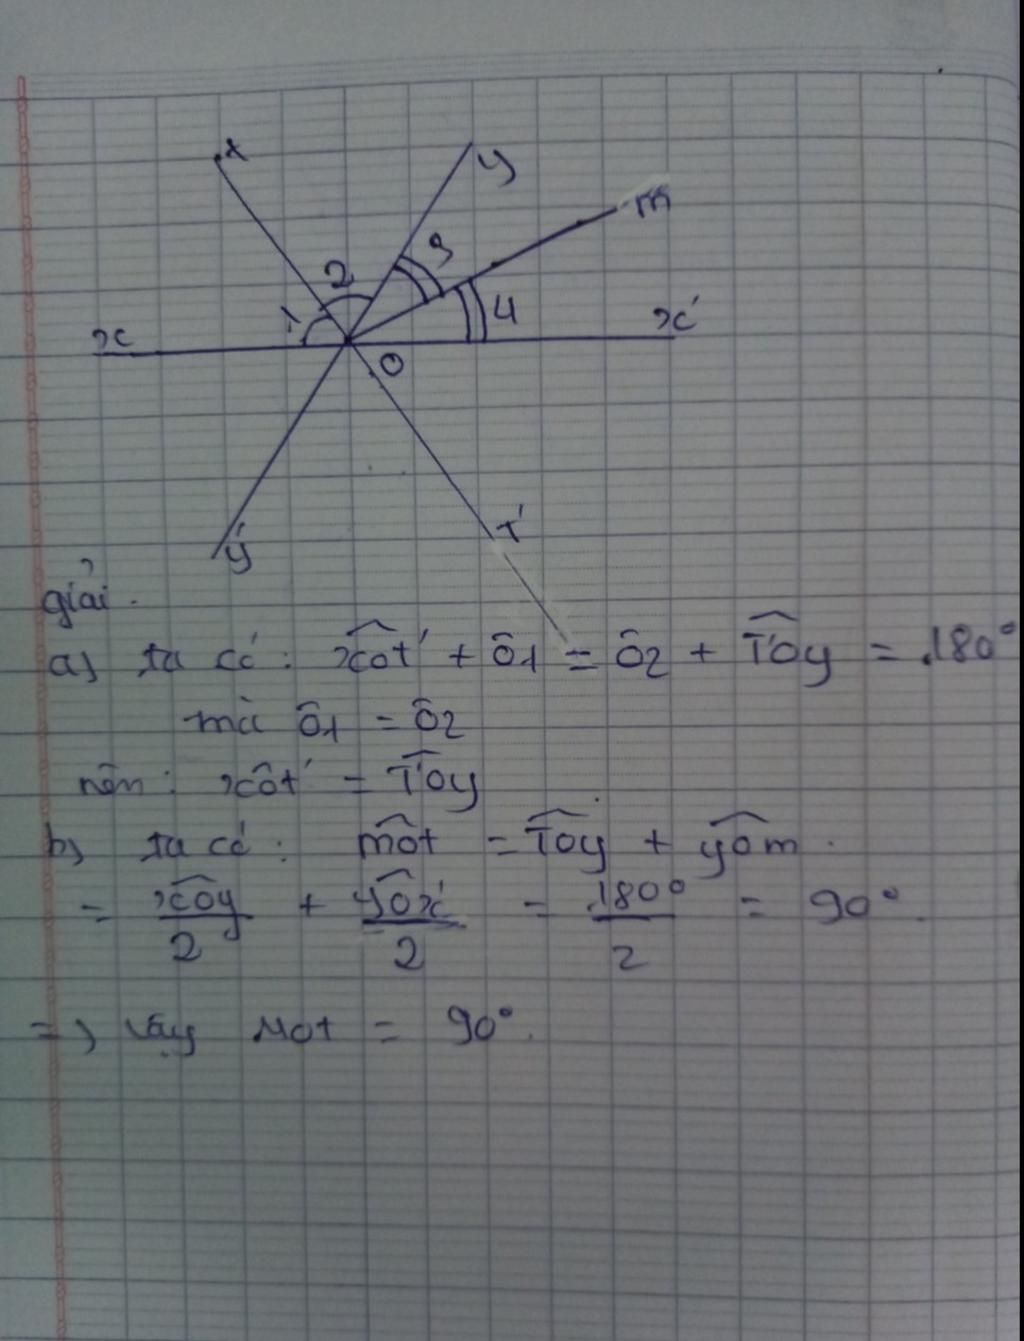 t
y
m
2
3
1
4
x
x'
O
t'
y'
giải.
a) ta có: xôt' + ô1 = ô2 + T'ôy = 180°
mà ô1 = ô2
nên: xôt' = T'ôy
b) ta có: môt = Tôy + yôm.
= xôy/2 + yôx'/2 = 180°/2 = 90°.
=> vậy Mot = 90°.